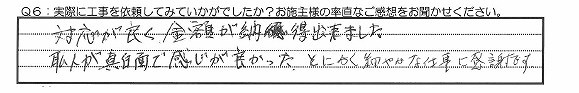 Q6：実際に工事を依頼してみていかがでしたか？お施主様の率直なご感想をお聞かせください。
対応が良く 金額が納得出来ました
職人が真面目で感じが良かった とにかく細やかな仕事に感謝です